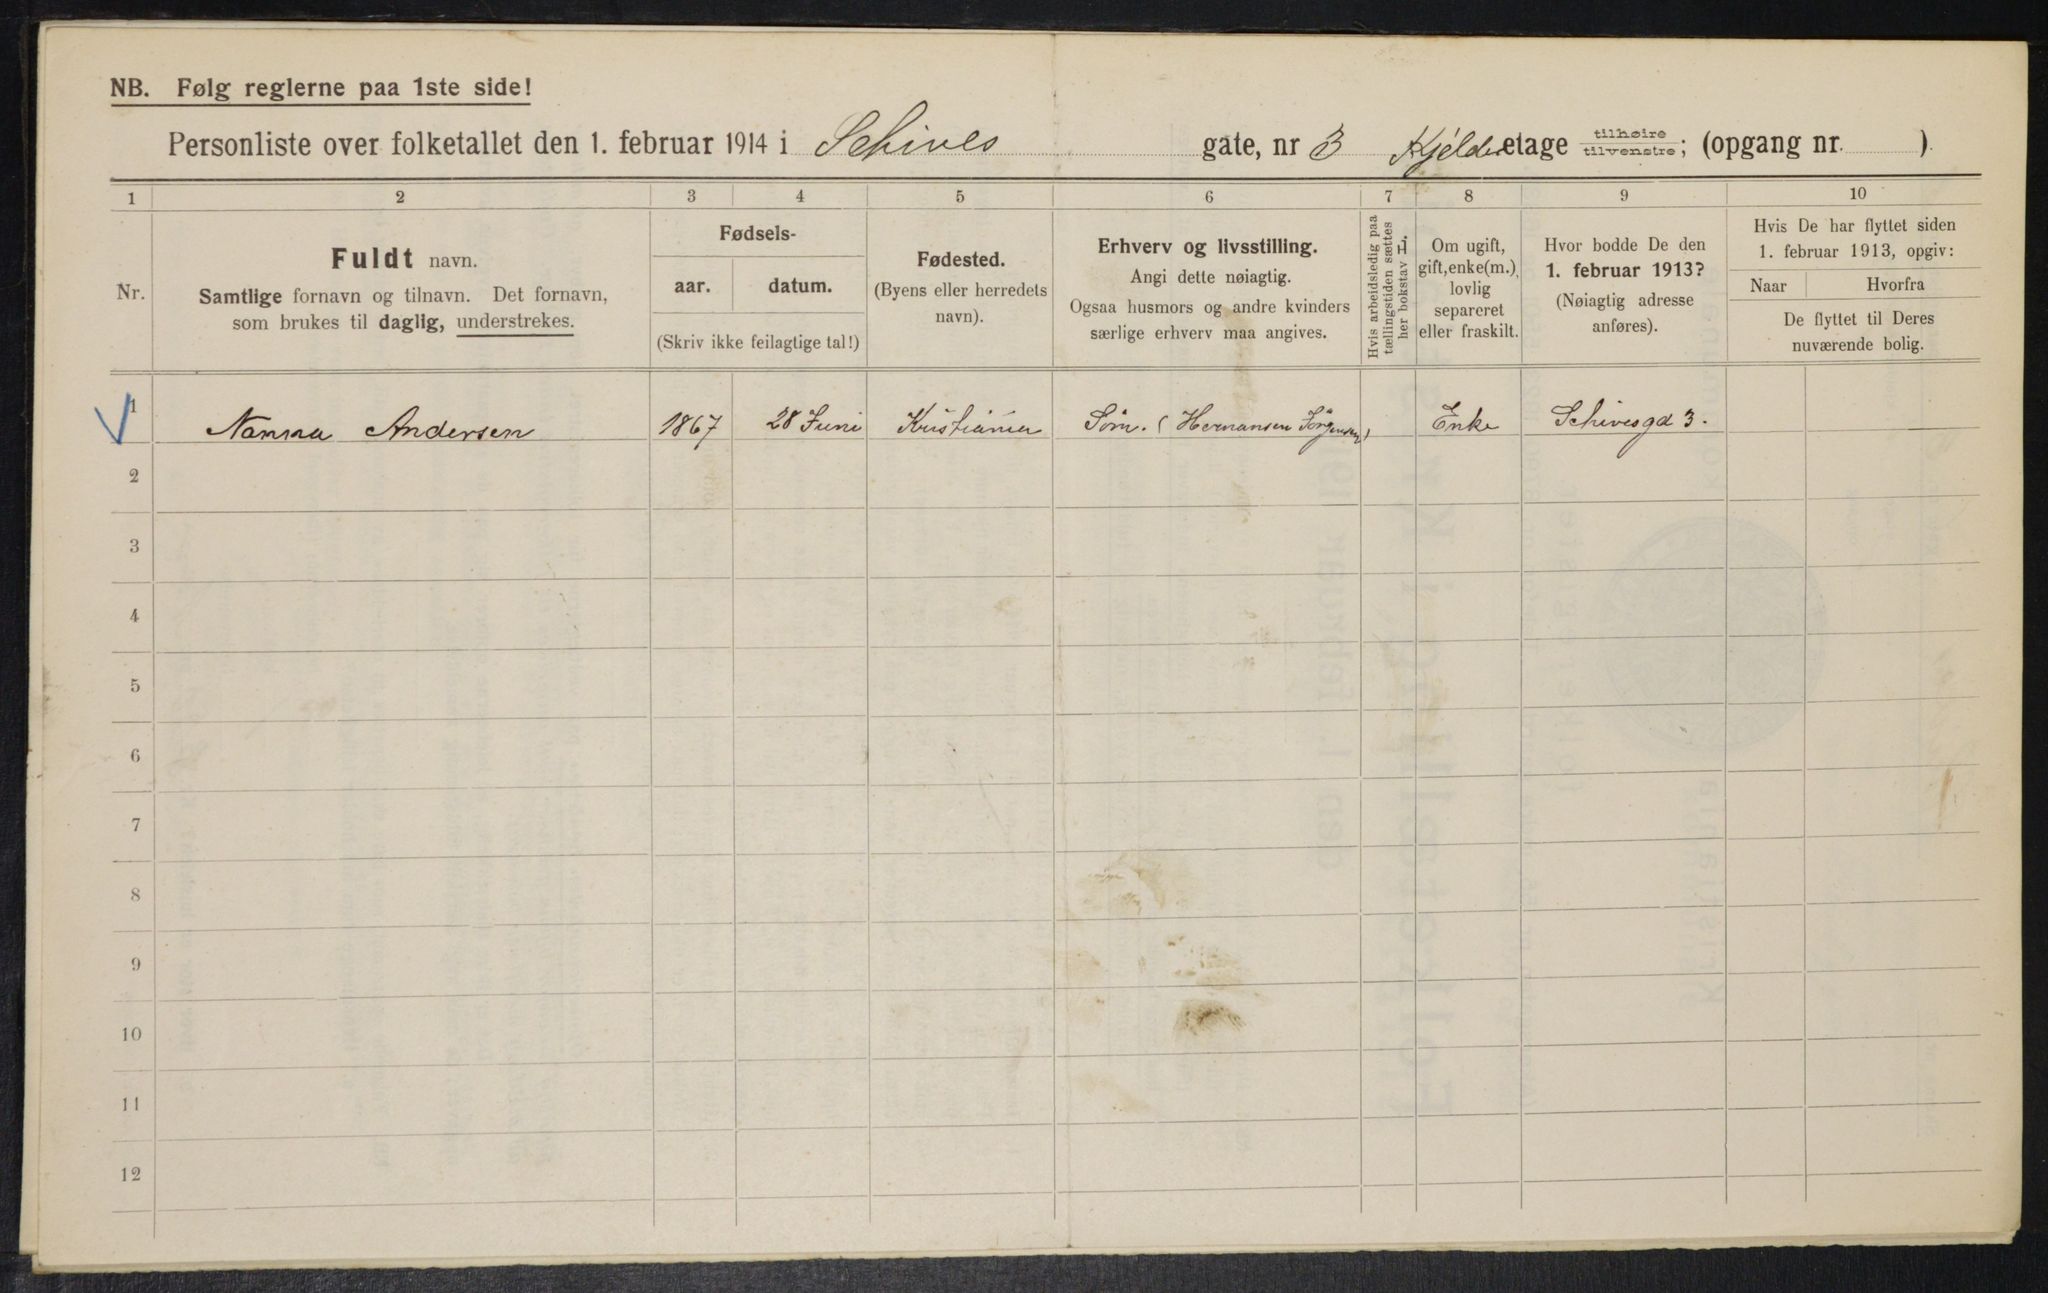 NB. Følg reglerne paa 1ste side!
Personliste over folketallet den 1. februar 1914 i Schives gate, nr 3 Kjelder etage tilhøire / tilvenstre; (opgang nr. )
1 2 3 4 5 6 7 8 9 10
Nr.
Fuldt navn.
Samtlige fornavn og tilnavn. Det fornavn,
som brukes til daglig, understrekes.
Fødsels-
aar. datum.
(Skriv ikke feilagtige tal!)
Fødested.
(Byens eller herredets
navn).
Erhverv og livsstilling.
Angi dette nøiagtig.
Ogsaa husmors og andre kvinders
særlige erhverv maa angives.
Hvis arbeidsledig paa
tællingstiden sættes
her bokstav L.
Om ugift,
gift, enke(m.),
lovlig
separeret
eller fraskilt.
Hvor bodde De den
1. februar 1913?
(Nøiagtig adresse
anføres).
Hvis De har flyttet siden
1. februar 1913, opgiv:
Naar Hvorfra
De flyttet til Deres
nuværende bolig.
1 Nanna Andersen 1867 28 Juni Kristiania Søm. (Hermansen Jörgensen) Enke Schivesgd 3.
2
3
4
5
6
7
8
9
10
11
12